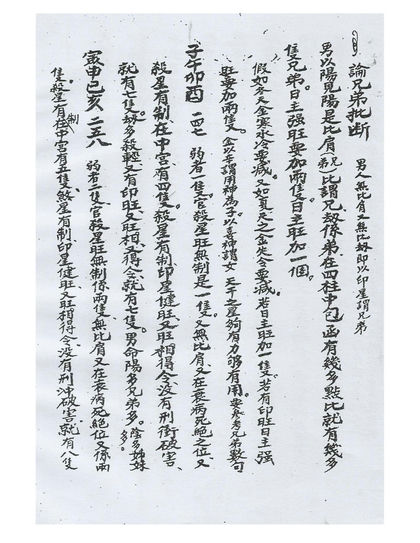 論兄弟批断
男人無比肩又無比劫即以印星謂兄弟
男以陽見陽是比肩(兄弟)比謂兄,劫係弟,在四柱中包函有幾多點比就有幾多
隻兄弟。日主強旺要加兩隻,日主旺加一個。
假如冬天金寒水冷要減。又如夏天之金失令要減。若日主旺加一隻。若有印旺日主强
旺要加兩隻。金以辛謂用神為子,以喜神謂女 天干之星夠有力够有用。要參考兄弟數句
子午卯酉 一四七 弱者一隻。官殺星旺無制是一隻。又無比肩又在衰病死絕之位,又
殺星有制在中宮有四隻。殺星有制印星健旺又旺相得令沒有刑衝破害、
就有七隻。劫多殺輕又有印旺又旺相又得令就有七隻。男命陽多兄弟多。陰多姊妹多。
寅申巳亥 二五八 弱者二隻官殺星旺無制係兩隻,無比肩又在衰病死絕位又係兩
隻。殺星有制在中宮有五隻。煞星有制印星健旺又旺相得令没有刑沖破害就有八隻